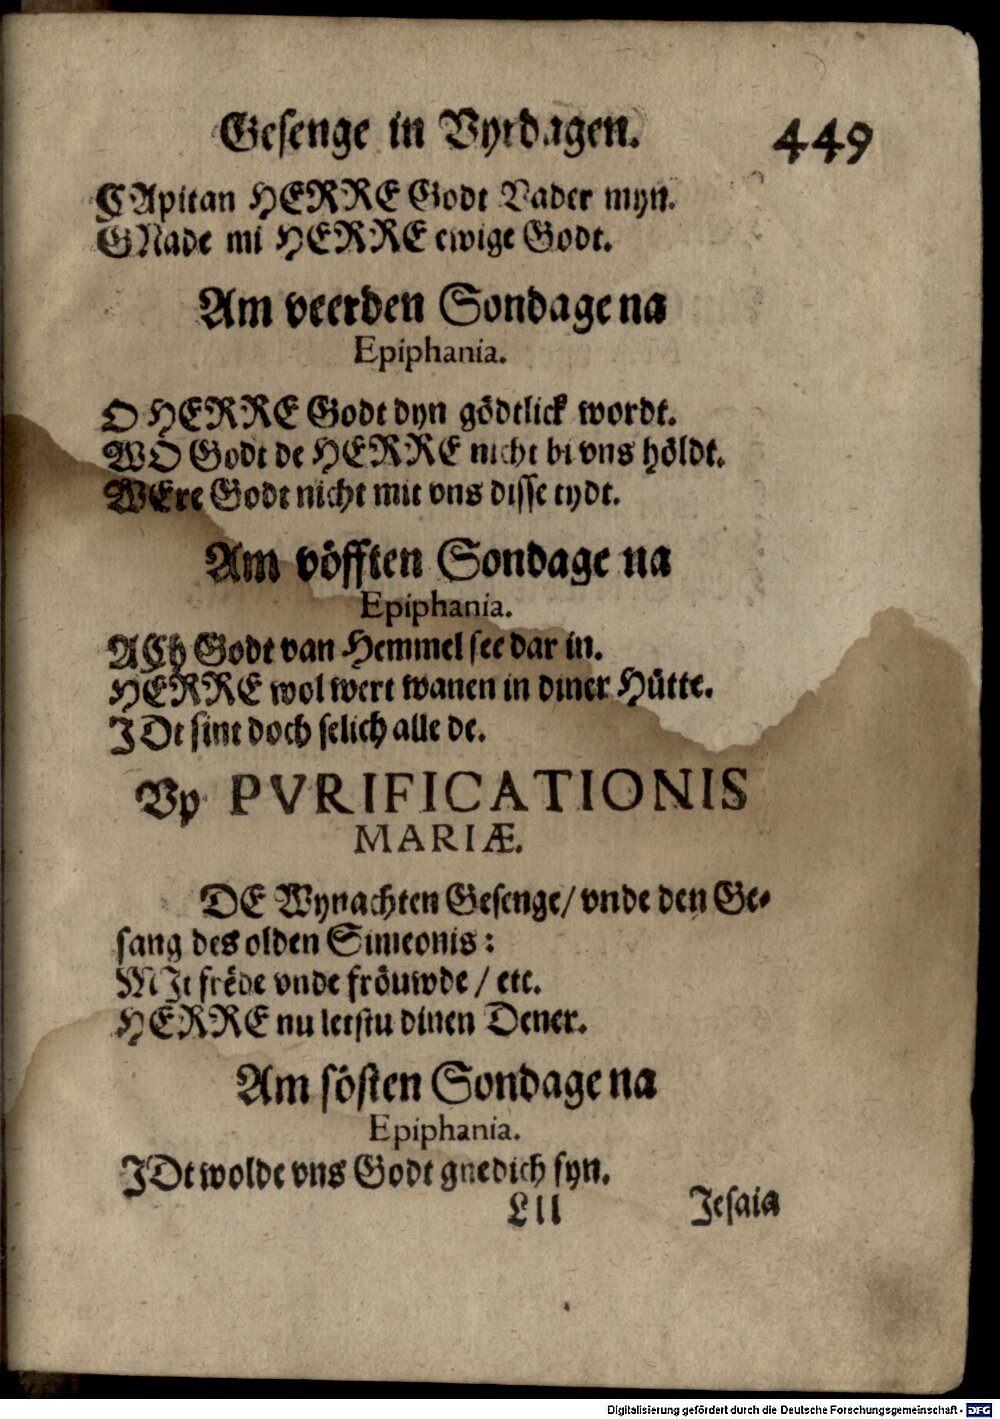 Gesenge in Vyrdagen. 449
CApitan HERRE Godt Vader myn.
GNade mi HERRE ewige Godt.
Am veerden Sondage na
Epiphania.
O HERRE Godt dyn gödtlick wordt.
WO Godt de HERRE nicht bi vns höldt.
WEre Godt nicht mit vns disse tydt.
Am vöfften Sondage na
Epiphania.
ACh Godt van Hemmel see dar in.
HERRE wol wert wanen in diner Hütte.
IDt sint doch selich alle de.
Vp PVRIFICATIONIS
MARIÆ.
DE Wynachten Gesenge / vnde den Ge-
sang des olden Simeonis:
MIt frëde vnde fröuwde / etc.
HERRE nu letstu dinen Dener.
Am sösten Sondage na
Epiphania.
IDt wolde vns Godt gnedich syn.
Lll Jesaia
Digitalisierung gefördert durch die Deutsche Forschungsgemeinschaft - DFG